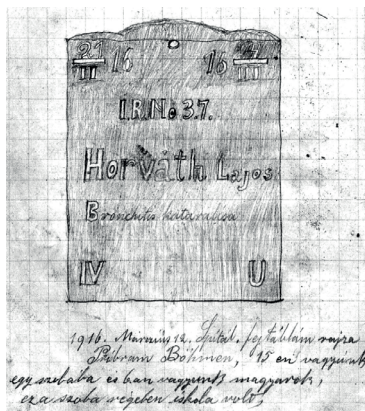 16 16
I.R.No 37.
Horváth Lajos
Bronchitis kataralisa
IV U
1916. Marzius 12. Spitál. fejtáblám rajza
Pribram Böhmen, 15 en vagyunk
egy szobába és ban vagyunk magyarok,
ez a szoba régeben iskola volt,